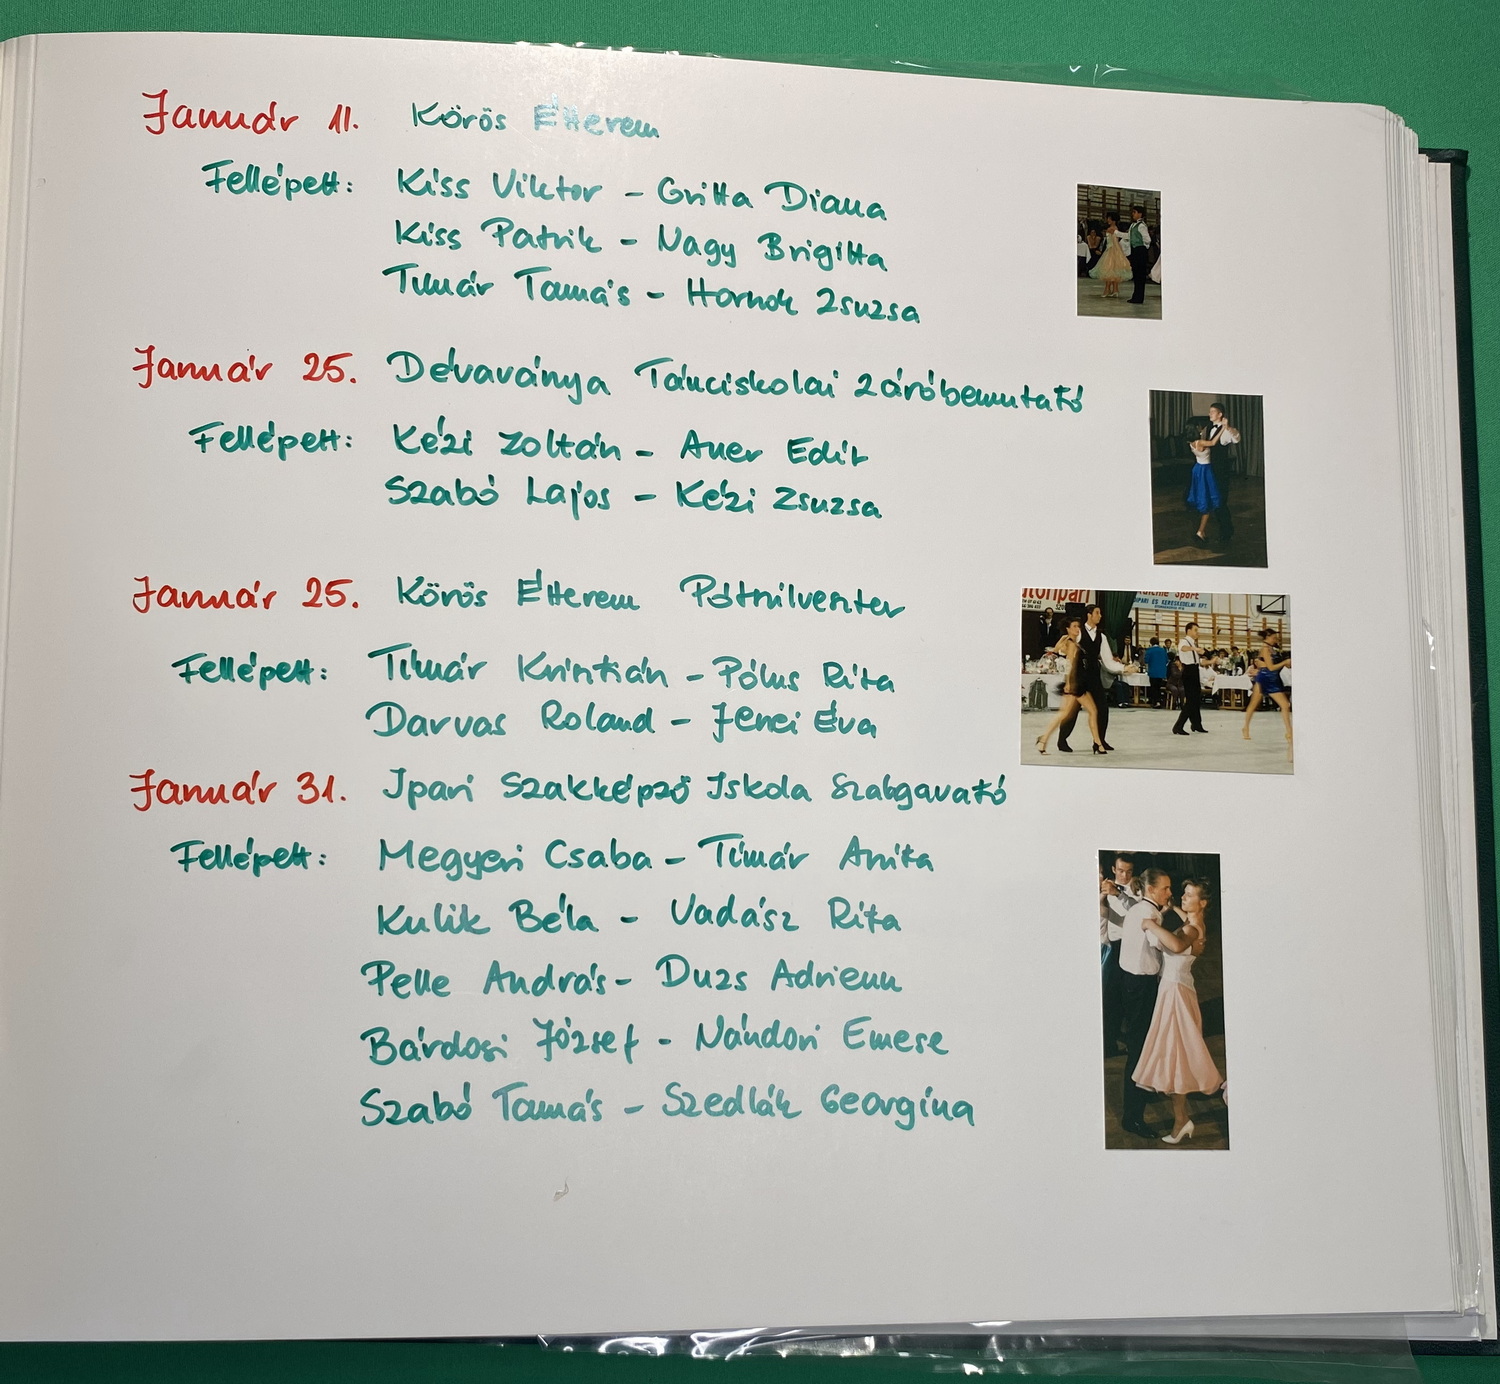 Január 11. Körös Étterem
Fellépett: Kiss Viktor - Gritta Diana
Kiss Patrik - Nagy Brigitta
Tímár Tamás - Hornok Zsuzsa
Január 25. Dévaványa Tánciskolai Záróbemutató
Fellépett: Kézi Zoltán - Auer Edit
Szabó Lajos - Kézi Zsuzsa
Január 25. Körös Étterem Pótszilveszter
Fellépett: Tímár Krisztián - Pólus Rita
Darvas Roland - Jenei Éva
Január 31. Ipari Szakképző Iskola Szalagavató
Fellépett: Megyeri Csaba - Tímár Anita
Kulik Béla - Vadász Rita
Pelle András - Duzs Adrienn
Bárdosi József - Nándori Emese
Szabó Tamás - Szedlák Georgina